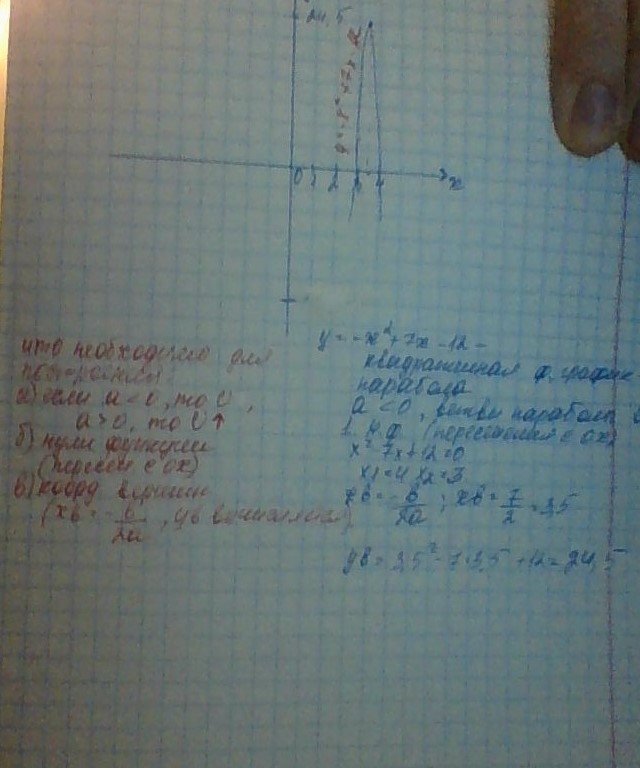 24,5
y=-x²+7x-12
0 1 2 3 4 x
что необходимо для
построения:
а) если a<0, то U,
a>0, то U↑
б) нули функции
(пересеч с ох)
в) коорд вершин
(xв=-b/2a, yв
y=-x²+7x-12 -
квадратичная ф, график
парабола
a<0, ветви параболы
1. н.ф. (пересечения с ох)
x²-7x+12=0
x1=4 x2=3
xв=-b/2a; xв=7/2=3,5
yв=3,5²-7·3,5+12=24,5